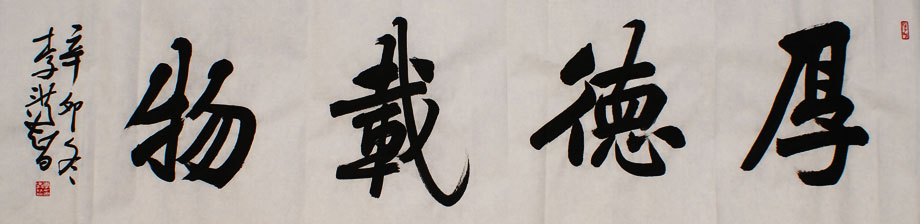 厚德載物
辛卯冬
李洪